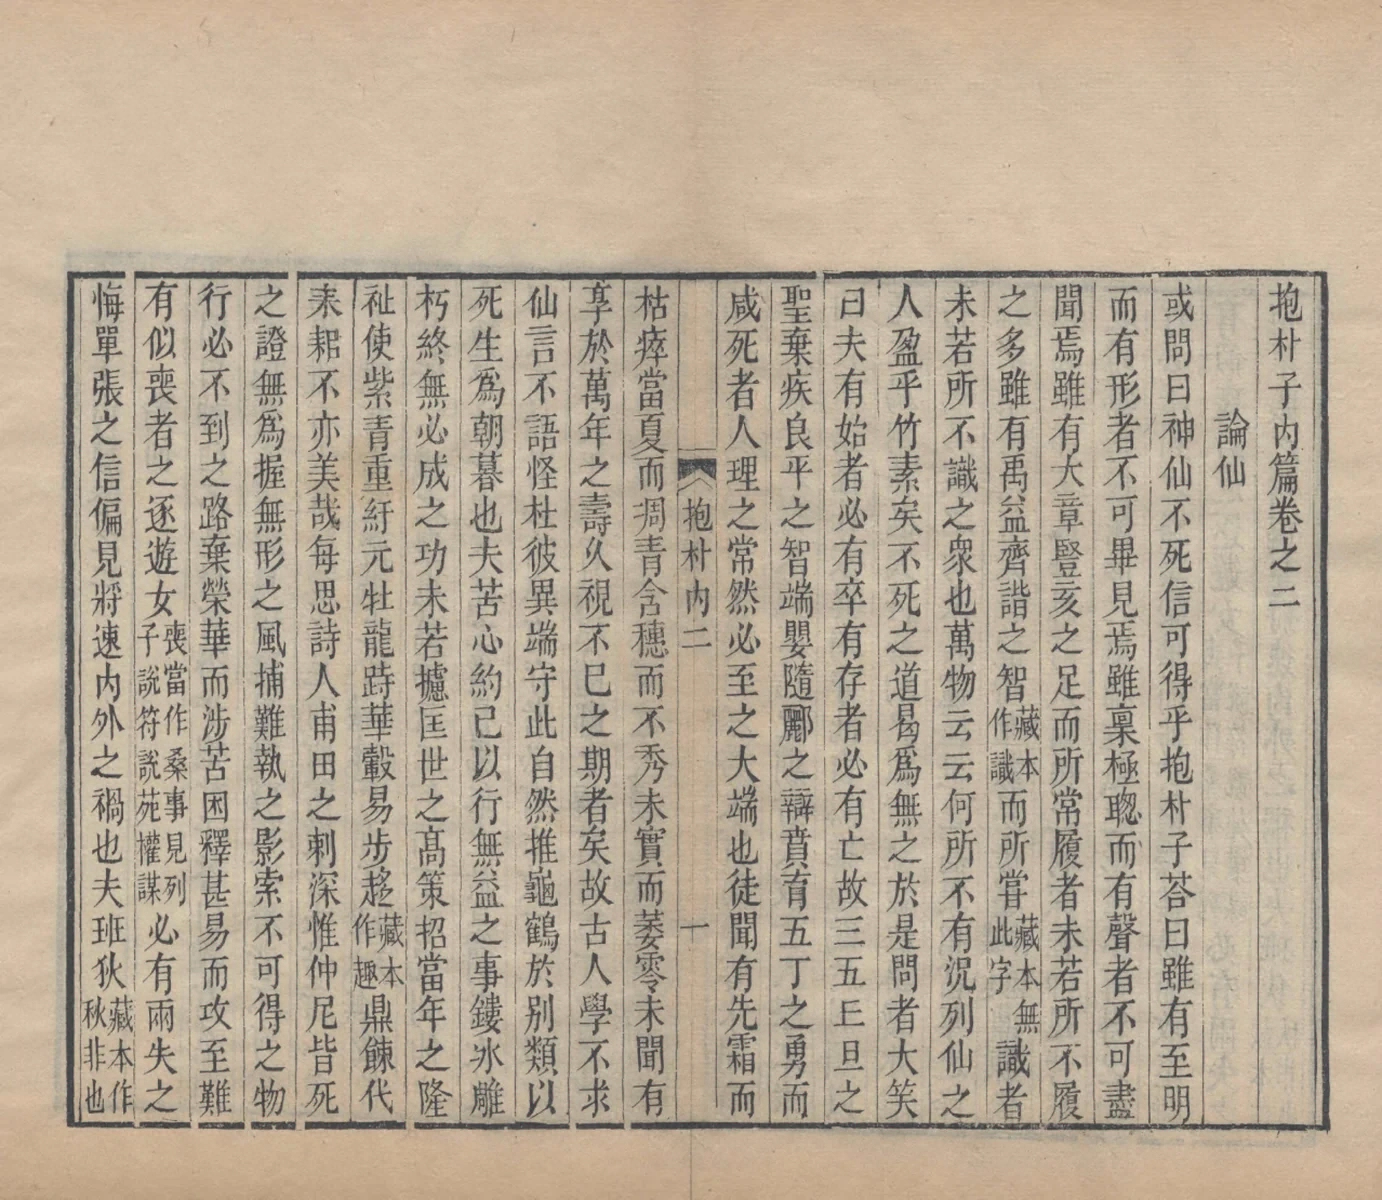 抱朴子內篇卷之二
論仙
或問曰神仙不死信可得乎抱朴子荅曰雖有至明
而有形者不可畢見焉雖稟極聦而有聲者不可盡
聞焉雖有大章豎亥之足而所常履者未若所不履
之多雖有禹益齊諧之智藏本作識而所嘗藏本無此字識者
未若所不識之衆也萬物云云何所不有況列仙之
人盈乎竹素矣不死之道曷爲無之於是問者大笑
曰夫有始者必有卒有存者必有亡故三五丘旦之
聖棄疾良平之智端嬰隨酈之辯賁育五丁之勇而
咸死者人理之常然必至之大端也徒聞有先霜而
抱朴內二
一
枯瘁當夏而凋青含穗而不秀未實而萎零未聞有
享於萬年之壽久視不已之期者矣故古人學不求
仙言不語怪杜彼異端守此自然推龜鶴於別類以
死生爲朝暮也夫苦心約己以行無益之事鏤冰雕
朽終無必成之功未若攄匡世之高策招當年之隆
祉使紫青重紆元牡龍跱華轂易步趍藏本作趣鼎餗代
耒耜不亦美哉每思詩人甫田之刺深惟仲尼皆死
之證無爲握無形之風捕難執之影索不可得之物
行必不到之路棄榮華而涉苦困釋甚易而攻至難
有似喪者之逐遊女喪當作桑事見列子說符說苑權謀必有兩失之
悔單張之信偏見將速內外之禍也夫班狄藏本作秋非也